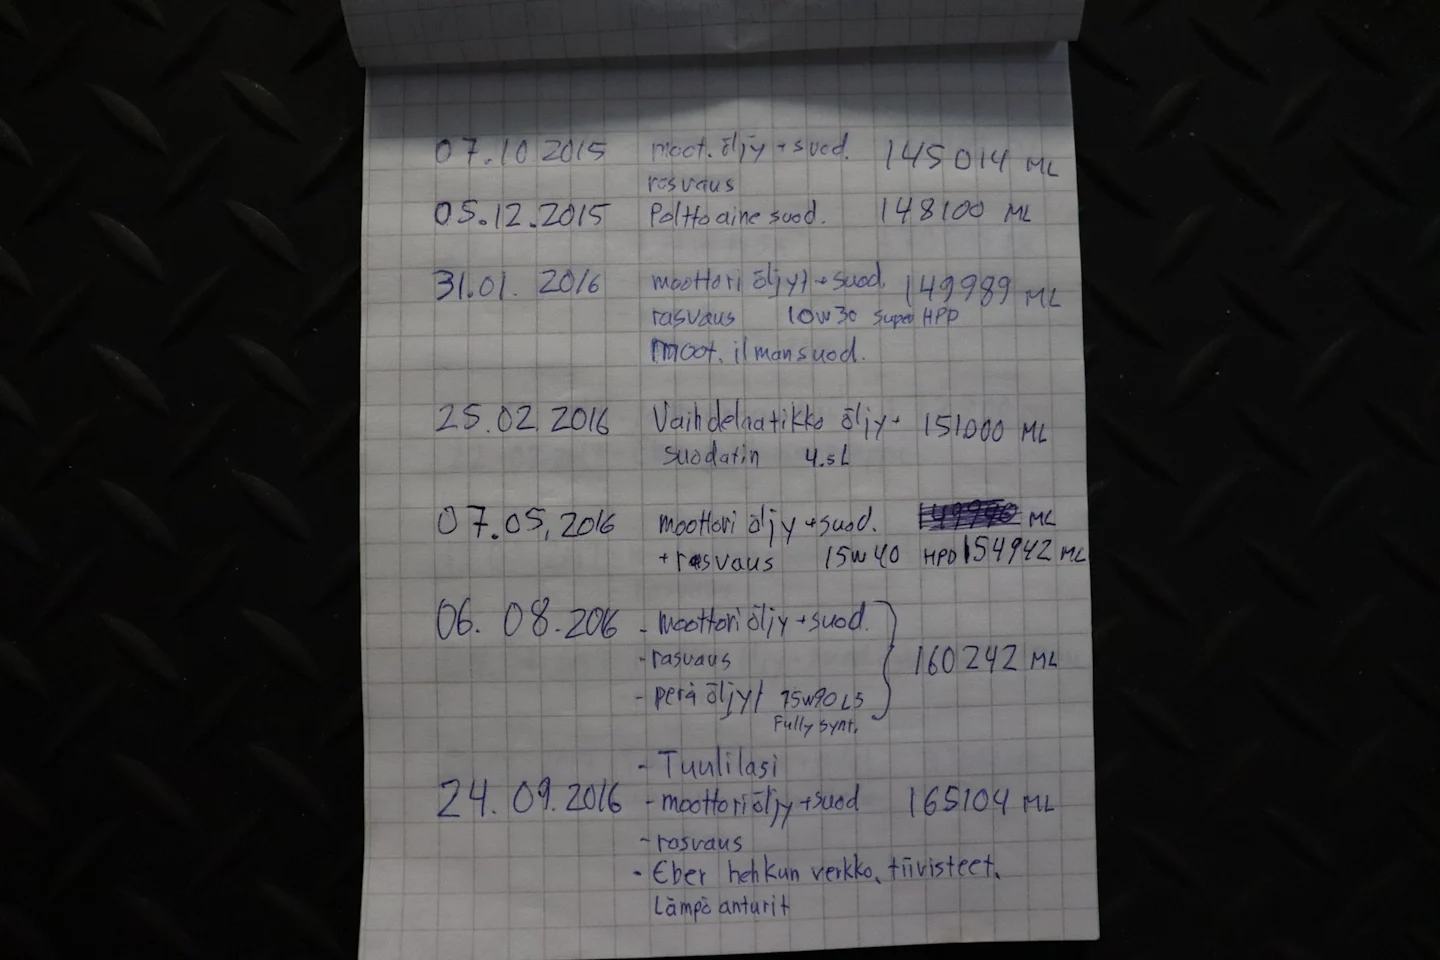 07.10 2015 moot. öljy + suod. 145014 ML
rasvaus
05.12.2015 Polttoaine suod. 148100 ML
31.01. 2016 moottori öljyt + suod. 149989 ML
rasvaus 10w30 Super HPD
moot. ilmansuod.
25.02.2016 Vaihdelaatikko öljy + 151000 ML
suodatin 4.5L
07.05.2016 moottori öljy + suod. ML
+ rasvaus 15w40 HPD 154942 ML
06.08.2016 - moottoriöljy + suod. 160242 ML
- rasvaus
- perä öljyt 75w90 LS
Fully Synt.
- Tuulilasi
24.09.2016 - moottoriöljy + suod 165104 ML
- rasvaus
- Eber hehkun verkko, tiivisteet,
Lämpö anturit